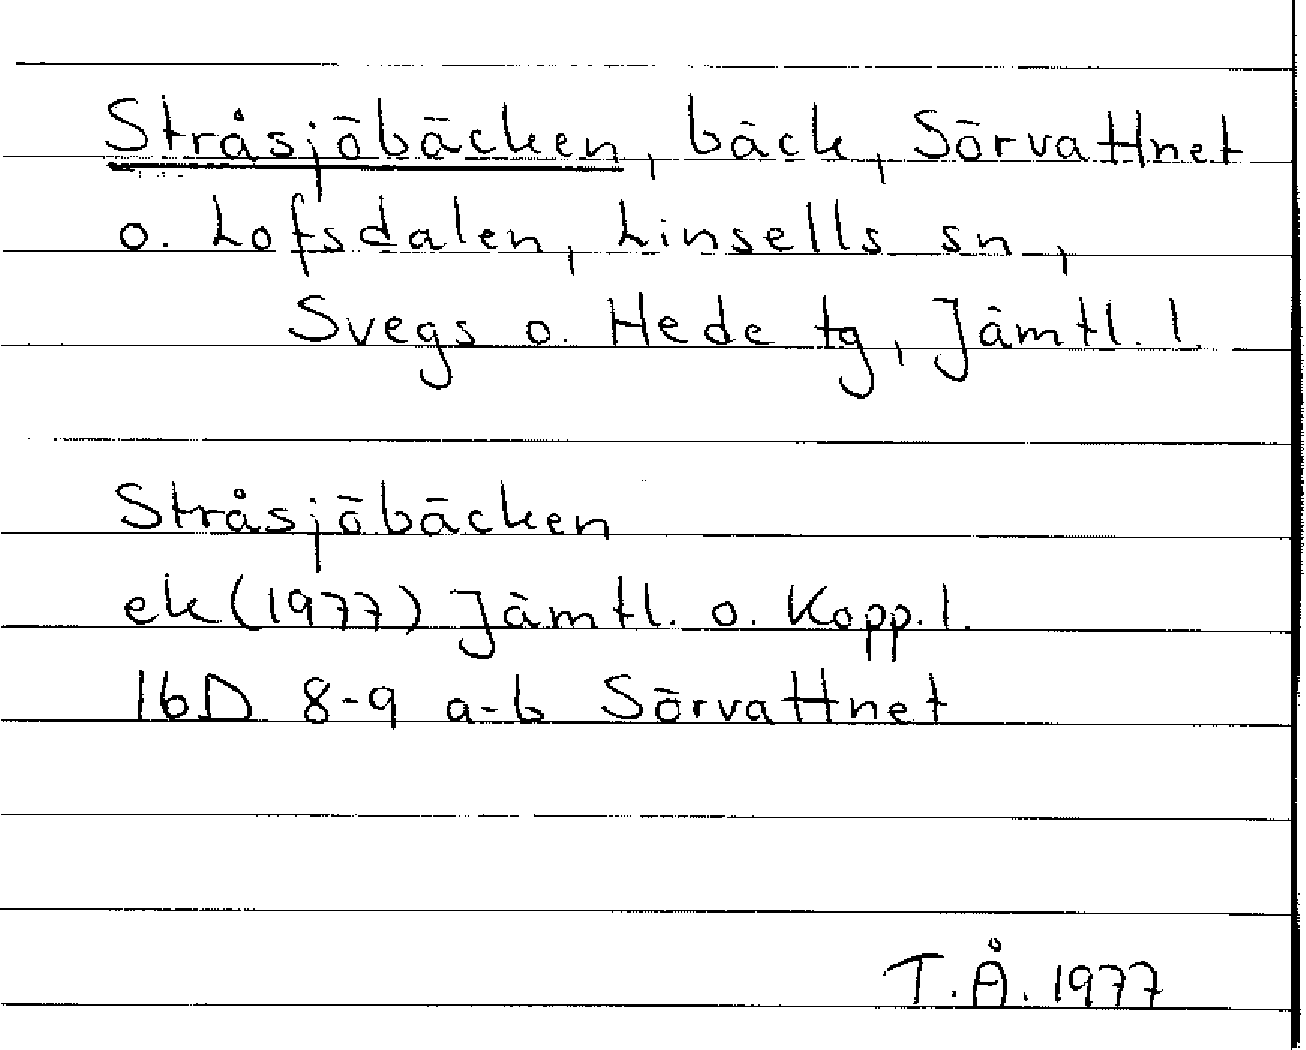 Stråsjöbäcken, bäck, Sörvattnet
o. Lofsdalen, Linsells sn,
Svegs o. Hede tg, Jämtl. l.
Stråsjöbäcken
ek (1977) Jämtl. o. Kopp. l.
16D 8-9 a-b Sörvattnet
T.Å. 1977